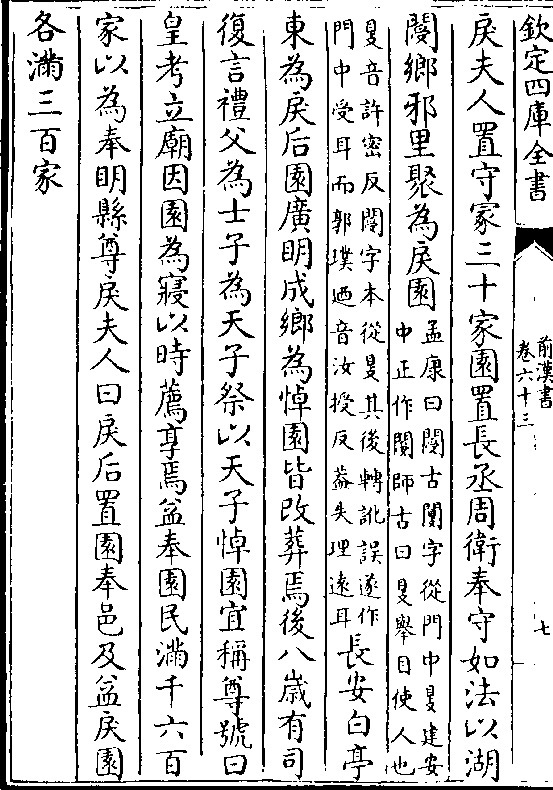 欽定四庫全書
前漢書
卷六十三
七
戾夫人置守冢三十家園置長丞周衛奉守如法以湖
閿鄉邪里聚為戾園
孟康曰閿古閺字從門中𡕥建安
中正作閿師古曰𡕥舉目使人也
𡕥音許密反閿字本從𡕥其後轉訛誤遂作
門中受耳而郭璞迺音汝授反葢失理遠耳
長安白亭
東為戾后園廣明成鄉為悼園皆改葬焉後八歲有司
復言禮父為士子為天子祭以天子悼園宜稱尊號曰
皇考立廟因園為寢以時薦享焉益奉園民滿千六百
家以為奉明縣尊戾夫人曰戾后置園奉邑及益戾園
各滿三百家